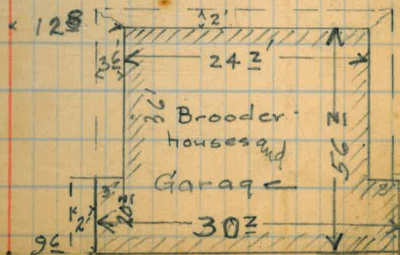 2'
12 8
3 6'
24 2'
36'
Brooder
houses and
Garage
56 2
3'
2'
20 2'
30 2
9 6